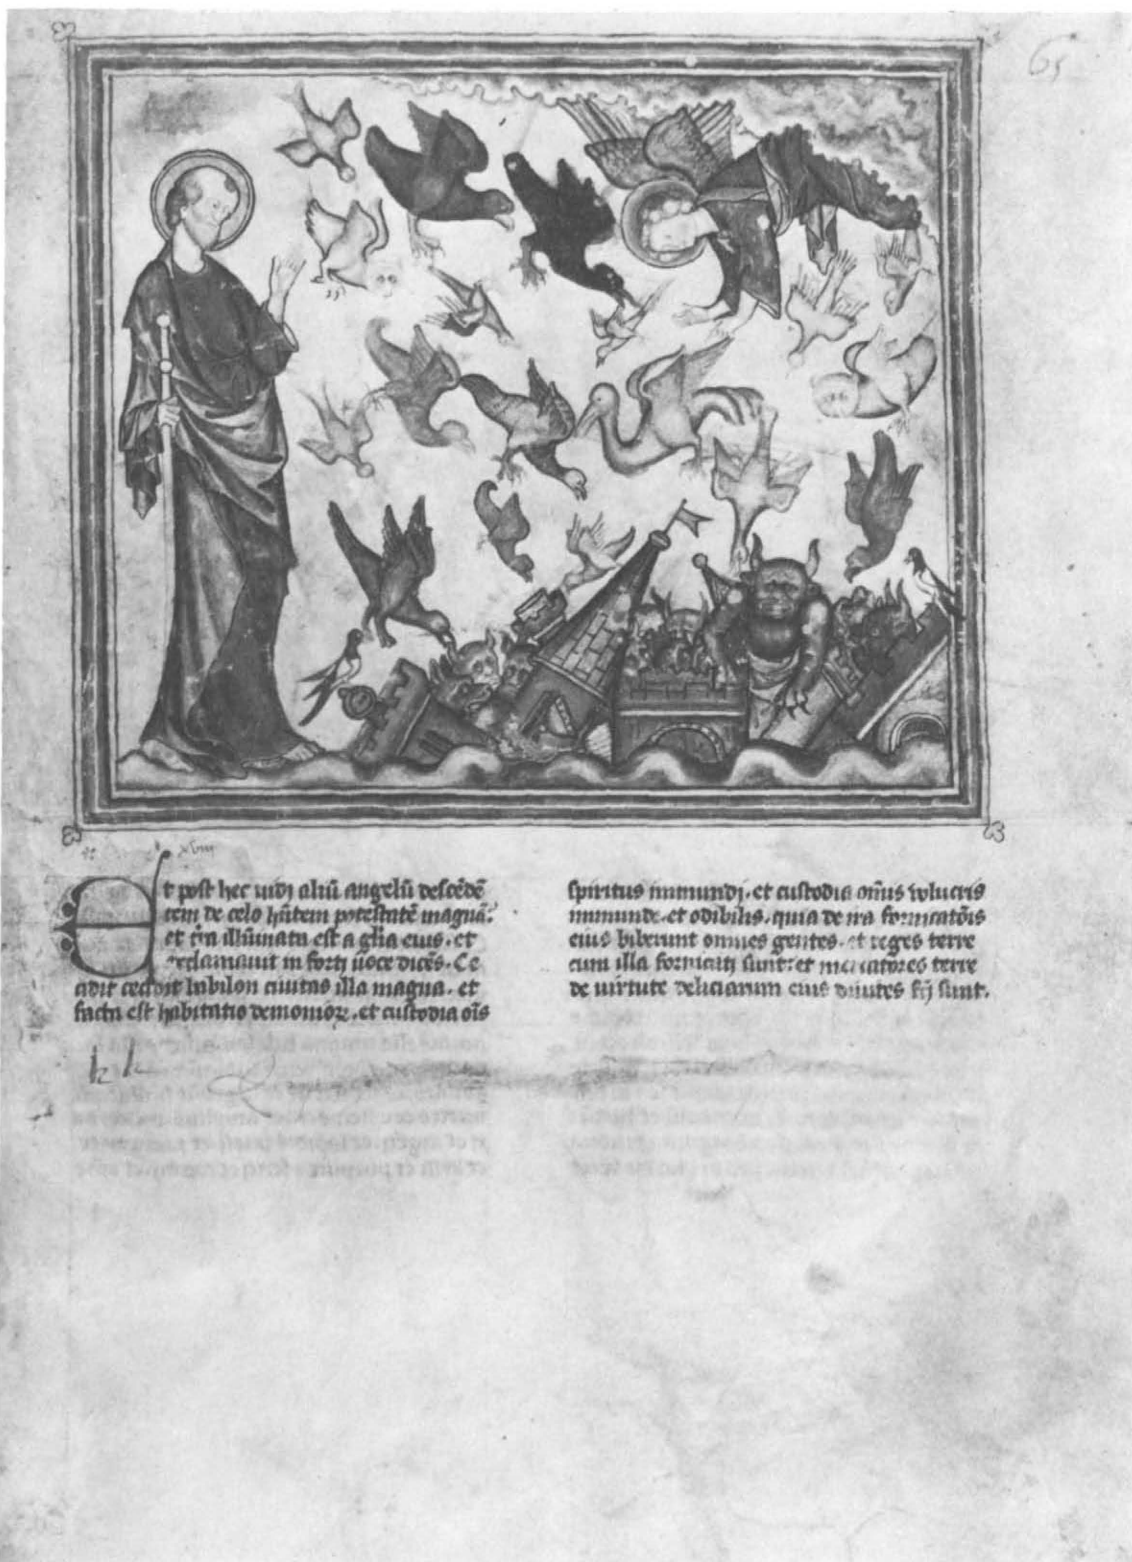 65
xviii
Et post hec uidi aliū angelū descēdē
tem de celo hñtem potestatē magnā:
et tr̄a illūinata est a glīa eius. et
exclamauit in forti uoce dicēs. Ce
cidit cecidit babilon ciuitas illa magna. et
facta est habitatio demonioꝝ. et custodia oīs
spiritus inmundi. et custodia om̄is uolucris
inmunde. et odibilis. quia de ira fornicatōis
eius biberunt omnes gentes. et reges terre
cum illa fornicati sunt: et mercatores terre
de uirtute deliciarum eius diuites fc̄i sunt.